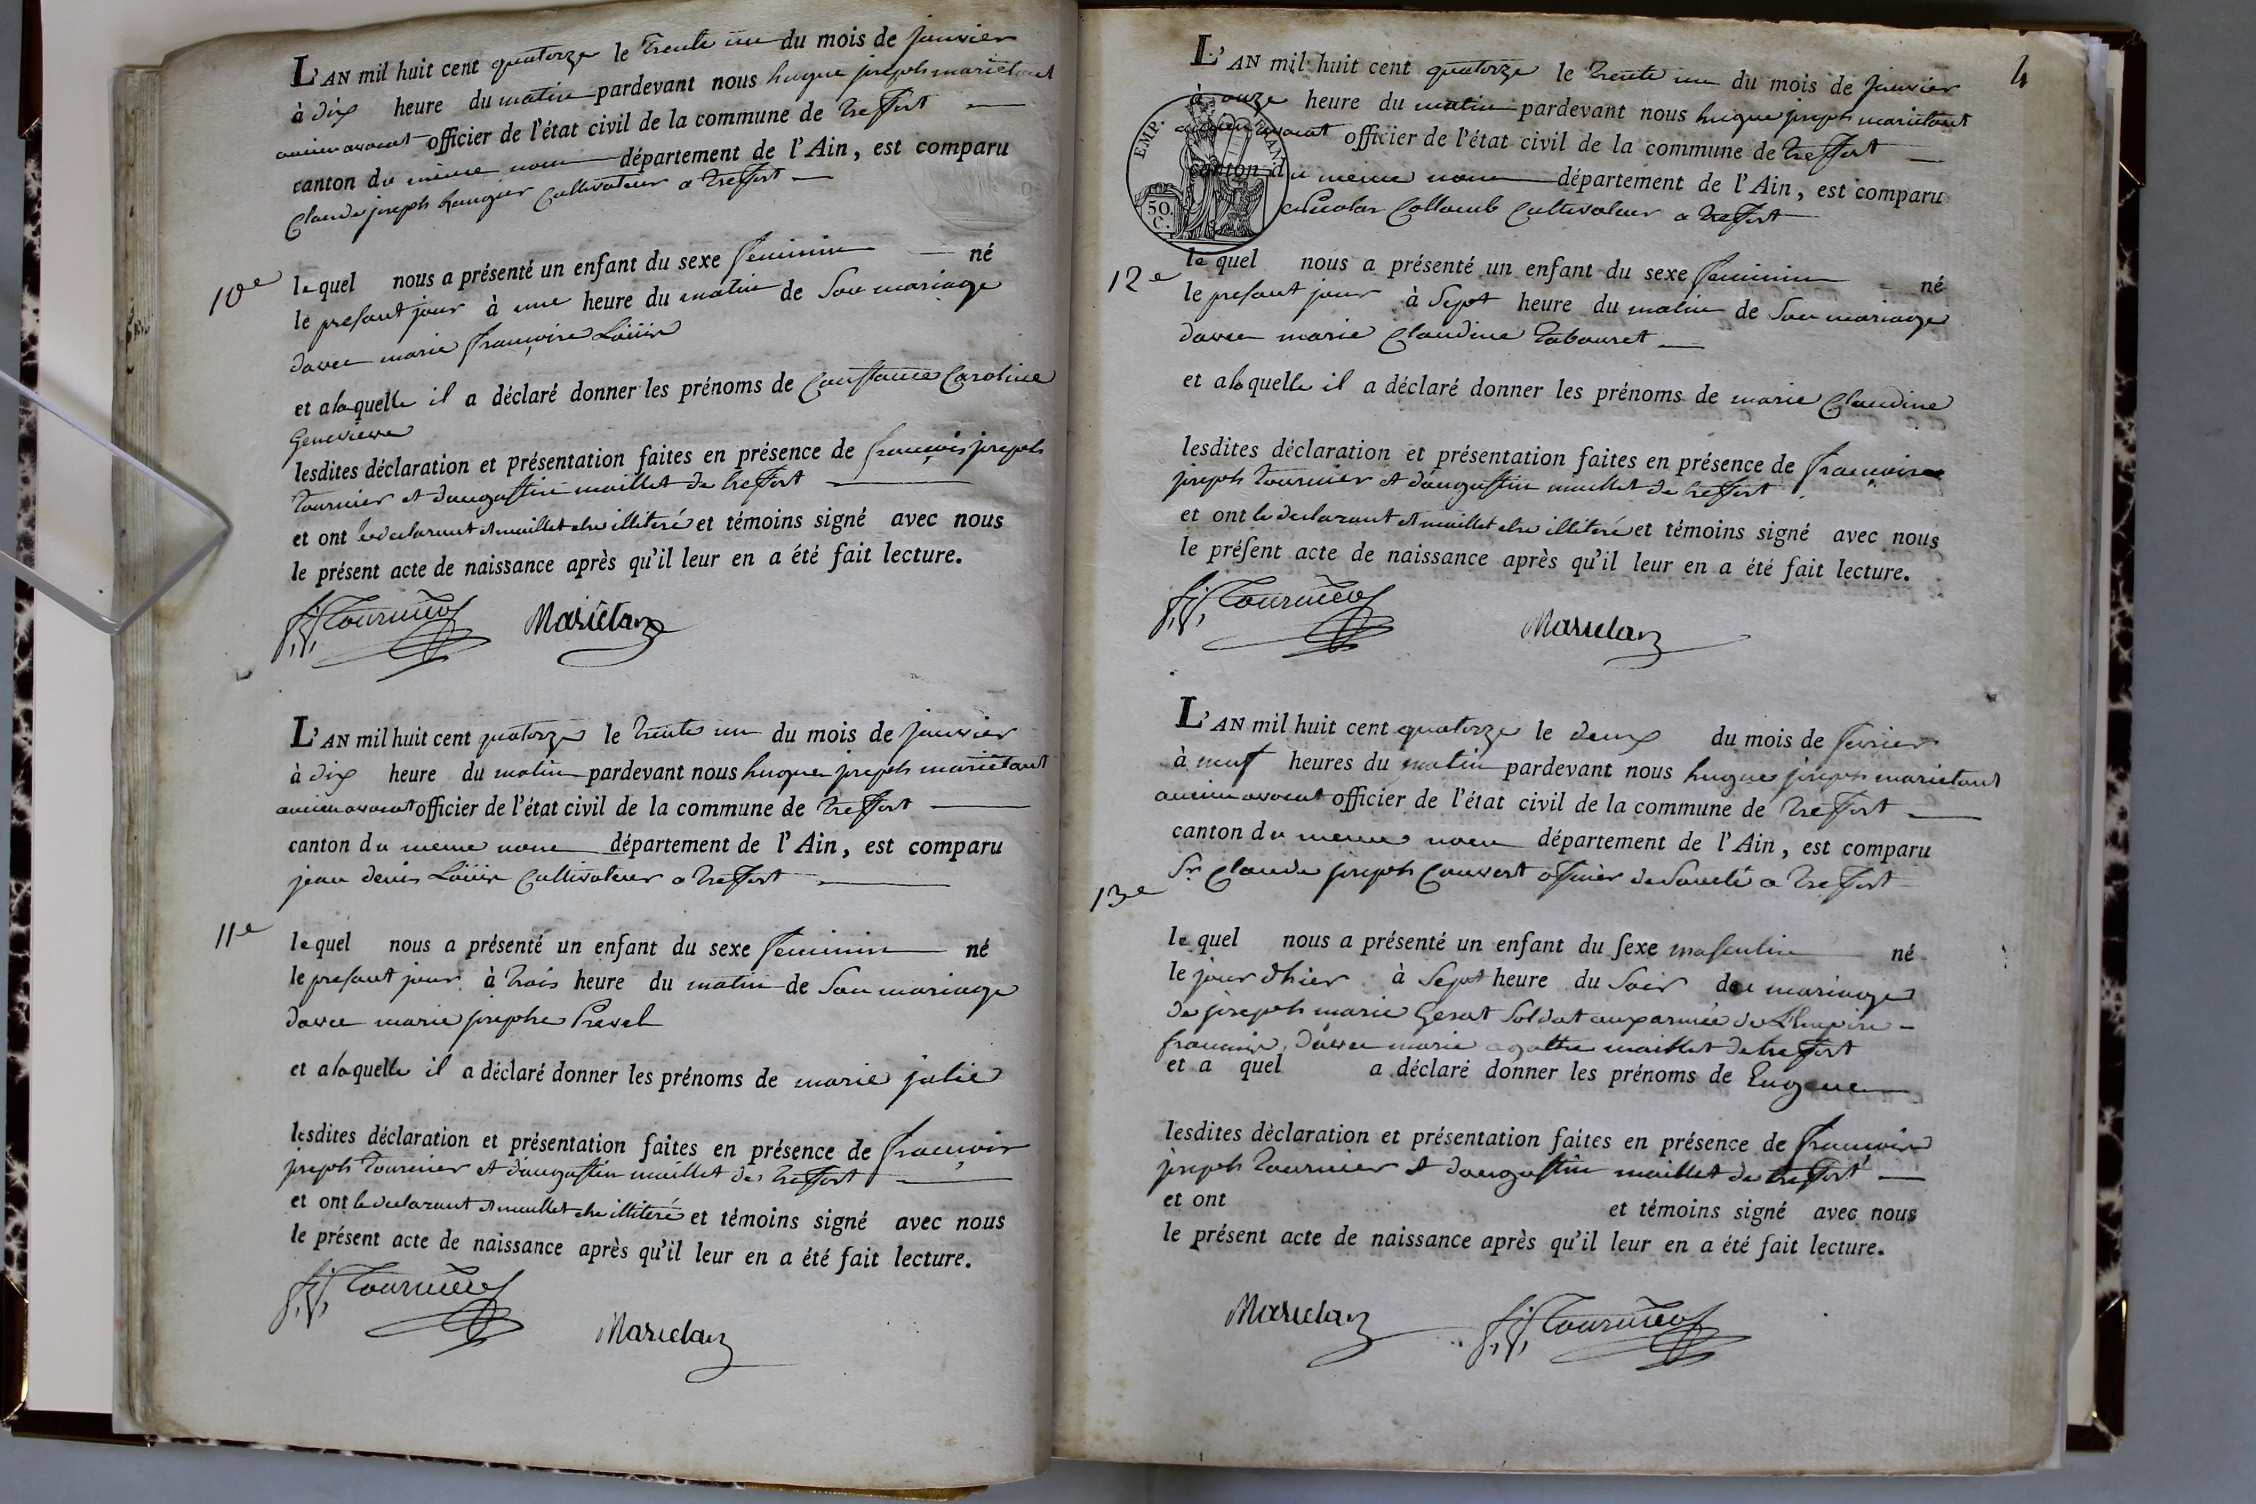 L'AN mil huit cent quatorze le trente un du mois de janvier
à dix heure du matin pardevant nous hugue joseph marietant
ancien avocat officier de l'état civil de la commune de treffort
canton du meme nom département de l'Ain, est comparu
Claude joseph Cultivateur a treffort
10e
lequel nous a présenté un enfant du sexe feminin né
le presant jour à une heure du matin de Son mariage
davec marie françoise
et alaquelle il a déclaré donner les prénoms de Constance Caroline
Genevieve
lesdites déclaration et présentation faites en présence de françois joseph
tournier et daugustin maillet de treffort
et ont le declarant et maillet etre illiteré et témoins signé avec nous
le présent acte de naissance après qu'il leur en a été fait lecture.
f. j. Tournier Marietan
L'AN mil huit cent quatorze le trente un du mois de janvier
à dix heure du matin pardevant nous hugue joseph marietant
ancien avocat officier de l'état civil de la commune de treffort
canton du meme nom département de l'Ain, est comparu
jean denis Cultivateur a treffort
11e
lequel nous a présenté un enfant du sexe feminin né
le presant jour à trois heure du matin de Son mariage
davec marie josephe Prevel
et alaquelle il a déclaré donner les prénoms de marie julie
lesdites déclaration et présentation faites en présence de françois
joseph tournier et daugustin maillet de treffort
et ont le declarant et maillet etre illiteré et témoins signé avec nous
le présent acte de naissance après qu'il leur en a été fait lecture.
f. j. Tournier
Marietan
4
L'AN mil huit cent quatorze le trente un du mois de janvier
à onze heure du matin pardevant nous hugue joseph marietant
ancien avocat officier de l'état civil de la commune de treffort
canton du meme nom département de l'Ain, est comparu
Nicolas Collomb Cultivateur a treffort
EMP. FRAN.
50 C.
12e
lequel nous a présenté un enfant du sexe feminin né
le presant jour à Sept heure du matin de Son mariage
davec marie Claudine Tabouret
et alaquelle il a déclaré donner les prénoms de marie Claudine
lesdites déclaration et présentation faites en présence de françois
joseph tournier et daugustin maillet de treffort
et ont le declarant et maillet etre illiteré et témoins signé avec nous
le présent acte de naissance après qu'il leur en a été fait lecture.
f. j. Tournier
Marietan
L'AN mil huit cent quatorze le deux du mois de fevrier
à neuf heures du matin pardevant nous hugue joseph marietant
ancien avocat officier de l'état civil de la commune de treffort
canton du meme nom département de l'Ain, est comparu
Sr Claude joseph Couvert officier de Santé a treffort
13e
lequel nous a présenté un enfant du sexe masculin né
le jour dhier à Sept heure du Soir du mariage
de joseph marie Gerat Soldat aux armée de L'Empire
francois, davec marie agathe maillet de treffort
et a quel a déclaré donner les prénoms de Eugene
lesdites déclaration et présentation faites en présence de françois
joseph tournier et daugustin maillet de treffort
et ont et témoins signé avec nous
le présent acte de naissance après qu'il leur en a été fait lecture.
Marietan
f. j. Tournier